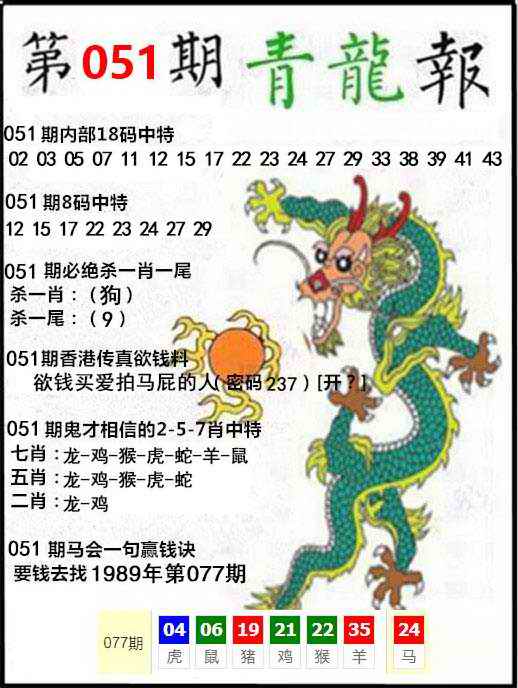 第051期青龍報
051期内部18码中特
02 03 05 07 11 12 15 17 22 23 24 27 29 33 38 39 41 43
051期8码中特
12 15 17 22 23 24 27 29
051 期必绝杀一肖一尾
杀一肖：（狗）
杀一尾：（9）
051期香港传真欲钱料
欲钱买爱拍马屁的人(密码237)[开？]
051期鬼才相信的2-5-7肖中特
七肖：龙-鸡-猴-虎-蛇-羊-鼠
五肖：龙-鸡-猴-虎-蛇
二肖：龙-鸡
051 期马会一句赢钱诀
要钱去找1989年第077期
077期 04 06 19 21 22 35 24
虎 鼠 猪 鸡 猴 羊 马